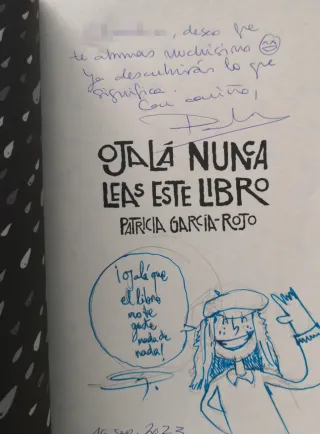 , deseo que
te aburras muchísimo
Ya descubrirás lo que
significa.
Con cariño,
OJALÁ NUNCA
LEAS ESTE LIBRO
PATRICIA GARCÍA-ROJO
¡ojalá que
el libro
no te
guste
nada de
nada!
16 sep. 2023